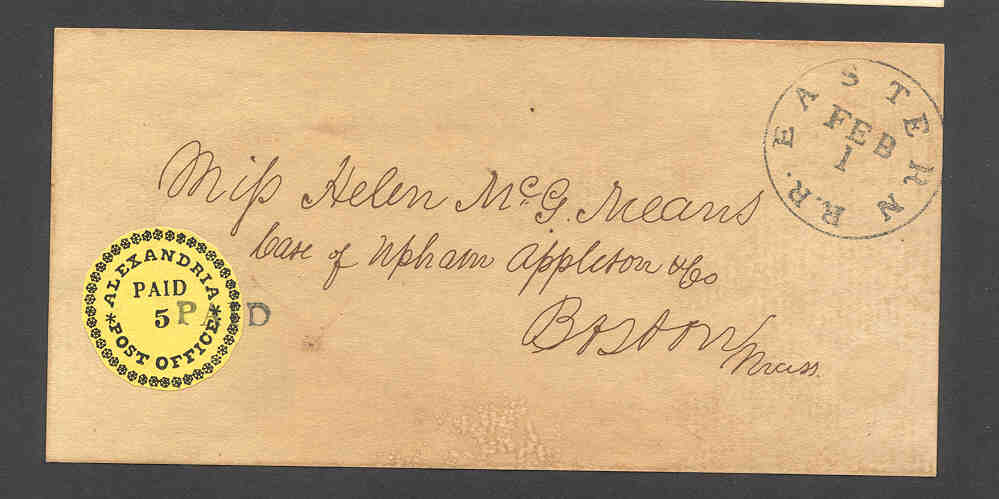 EASTERN R.R.
FEB
1
Miss Helen McG. Means
Care of Upham Appleton & Co
Boston
Mass.
ALEXANDRIA
PAID
5
* POST OFFICE *
PAID